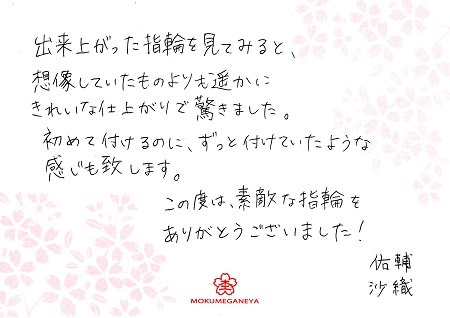 出来上がった指輪を見てみると、
想像していたものよりも遥かに
きれいな仕上がりで驚きました。
初めて付けるのに、ずっと付けていたような
感じも致します。
この度は、素敵な指輪を
ありがとうございました！
佑輔
沙織
MOKUMEGANEYA